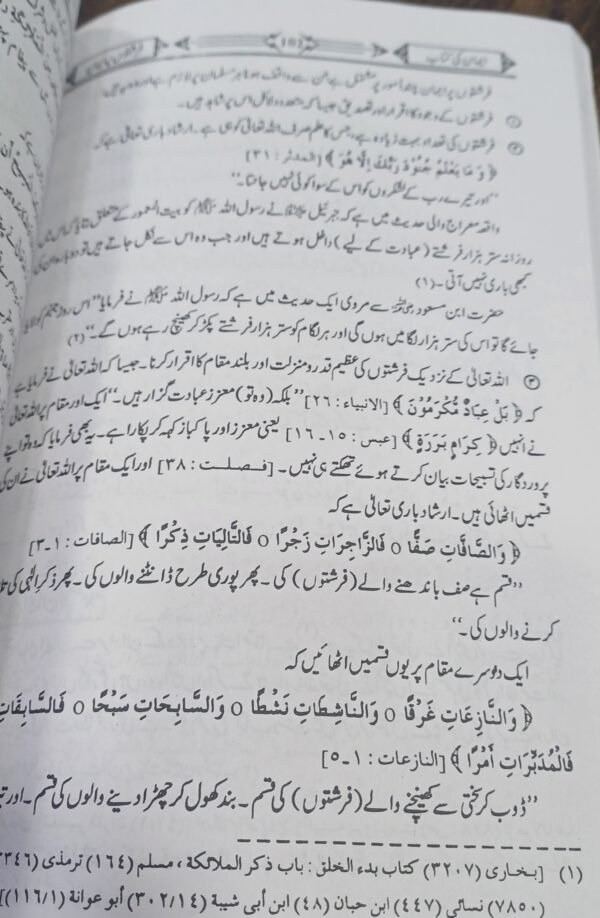 ایمان کی کتاب 102
فرشتوں پر ایمان چند امور پر مشتمل ہے جن سے واقف ہونا ہر مسلمان پر لازم ہے اور وہ یہ ہیں:
① فرشتوں کے وجود کا اقرار اور تصدیق جیسا کہ متعدد دلائل اس پر شاہد ہیں۔
② فرشتوں کی تعداد بہت زیادہ ہے، جس کا علم صرف اللہ تعالیٰ کو ہی ہے۔ ارشاد باری تعالیٰ ہے کہ
﴿ وَ مَا یَعْلَمُ جُنُوْدَ رَبِّكَ اِلَّا هُوَ ﴾ [المدثر : ٣١]
”اور تیرے رب کے لشکروں کو اس کے سوا کوئی نہیں جانتا۔“
واقعہ معراج والی حدیث میں ہے کہ جبرئیل علیہ السلام نے رسول اللہ ﷺ کو بیت المعمور کے متعلق بتایا کہ اس میں
روزانہ ستر ہزار فرشتے (عبادت کے لیے) داخل ہوتے ہیں اور جب وہ اس سے نکل جاتے ہیں تو دوبارہ ان کی
کبھی باری نہیں آتی۔ (١)
حضرت ابن مسعود رضی اللہ عنہ سے مروی ایک حدیث میں ہے کہ رسول اللہ ﷺ نے فرمایا ”اس روز جہنم کو لایا
جائے گا تو اس کی ستر ہزار لگامیں ہوں گی اور ہر لگام کو ستر ہزار فرشتے پکڑ کر کھینچ رہے ہوں گے۔“ (٢)
③ اللہ تعالیٰ کے نزدیک فرشتوں کی عظیم قدر و منزلت اور بلند مقام کا اقرار کرنا۔ جیسا کہ اللہ تعالیٰ نے فرمایا ہے
کہ ﴿ بَلْ عِبَادٌ مُّكْرَمُوْنَ ﴾ [الانبیاء : ٢٦] ”بلکہ (وہ تو) معزز عبادت گزار ہیں۔“ ایک اور مقام پر اللہ تعالیٰ
نے انہیں ﴿ كِرَامٍ بَرَرَةٍ ﴾ [عبس : ١٥-١٦] یعنی معزز اور پاکباز کہہ کر پکارا ہے۔ یہ بھی فرمایا کہ وہ تو اپنے
پروردگار کی تسبیحات بیان کرتے ہوئے تھکتے ہی نہیں۔ [فصلت : ٣٨] اور ایک مقام پر اللہ تعالیٰ نے ان کی
قسمیں اٹھائی ہیں۔ ارشاد باری تعالیٰ ہے کہ
﴿ وَالصَّافَّاتِ صَفًّا ○ فَالزَّاجِرَاتِ زَجْرًا ○ فَالتَّالِيَاتِ ذِكْرًا ﴾ [الصافات : ١-٣]
”قسم ہے صف باندھنے والے (فرشتوں) کی۔ پھر پوری طرح ڈانٹنے والوں کی۔ پھر ذکر الٰہی کی
کرنے والوں کی۔“
ایک دوسرے مقام پر یوں قسمیں اٹھائیں کہ
﴿ وَالنَّازِعَاتِ غَرْقًا ○ وَالنَّاشِطَاتِ نَشْطًا ○ وَالسَّابِحَاتِ سَبْحًا ○ فَالسَّابِقَاتِ
فَالْمُدَبِّرَاتِ أَمْرًا ﴾ [النازعات : ١-٥]
”ڈوب کر سختی سے کھینچنے والے (فرشتوں) کی قسم۔ بند کھول کر چھڑا دینے والوں کی قسم۔ اور
(١) [بخاری (٣٢٠٧) کتاب بدء الخلق : باب ذکر الملائکة ، مسلم (١٦٤) ترمذی (٣٣٤٦)
(٧٨٥٠) نسائی (٤٤٧) ابن حبان (٤٨) ابن أبی شیبة (٣٠٢/١٤) أبو عوانة (١١٦/١)]